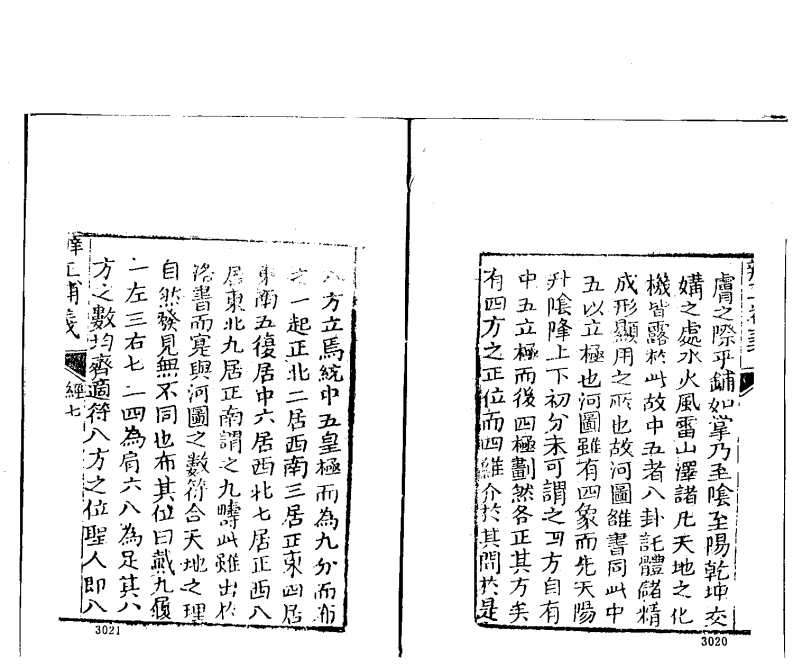 膚之際平鋪如掌乃至陰至陽乾坤交
媾之處水火風雷山澤諸凡天地之化
機皆露於此故中五者八卦託體儲精
成形顯用之所也故河圖雒書同此中
五以立極也河圖雖有四象而先天陽
升陰降上下初分未可謂之四方自有
中五立極而後四極劃然各正其方矣
有四方之正位而四維介於其間於是
3020
八方立焉統中五皇極而為九分而布
之一起正北二居西南三居正東四居
東南五復居中六居西北七居正西八
居東北九居正南謂之九疇此雖出於
洛書而寔與河圖之數符合天地之理
自然發見無不同也布其位曰戴九履
一左三右七二四為肩六八為足其八
方之數均齊適符八方之位聖人即八
辨正補義
經七
3021